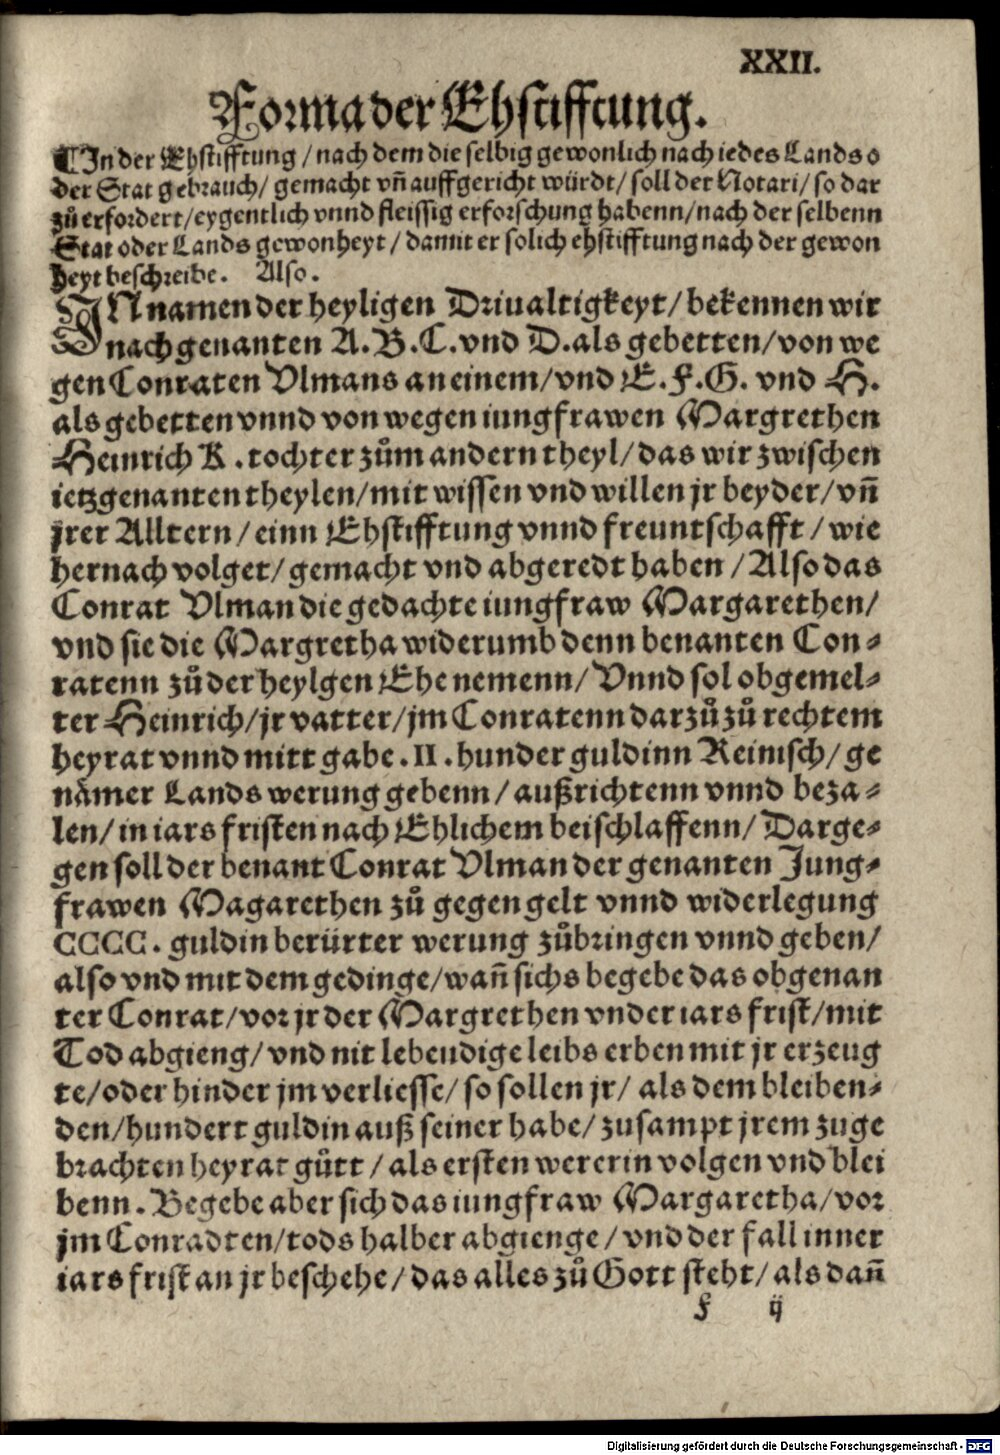 XXII.
Forma der Ehstifftung.
¶In der Ehstifftung / nach dem die selbig gewonlich nach iedes Lands o
der Stat gebrauch/ gemacht vñ auffgericht würdt/ soll der Notari/ so dar
zů erfordert/eygentlich vnnd fleissig erforschung habenn/nach der selbenn
Stat oder Lands gewonheyt / damit er solich ehstifftung nach der gewon
heyt beschreibe. Also.
IN namen der heyligen Driualtigkeyt/ bekennen wir
nachgenanten A. B. C. vnd D. als gebetten/von we
gen Conraten Vlmans an einem/vnd E. F. G. vnd H.
als gebetten vnnd von wegen iungfrawen Margrethen
Heinrich K. tochter zům andern theyl/das wir zwischen
ietzgenanten theylen/mit wissen vnd willen jr beyder/vñ
jrer Alltern/einn Ehstifftung vnnd freuntschafft / wie
hernach volget/gemacht vnd abgeredt haben / Also das
Conrat Vlman die gedachte iungfraw Margarethen/
vnd sie die Margretha widerumb denn benanten Con⸗
ratenn zů der heylgen Ehe nemenn/ Vnnd sol obgemel⸗
ter Heinrich/jr vatter/jm Conratenn darzů zů rechtem
heyrat vnnd mitt gabe. II. hunder guldinn Reinisch/ ge
nämer Lands werung gebenn/außrichtenn vnnd beza⸗
len/in iars fristen nach Ehlichem beischlaffenn/ Darge⸗
gen soll der benant Conrat Vlman der genanten Jung⸗
frawen Magarethen zů gegengelt vnnd widerlegung
CCCC. guldin berürter werung zůbringen vnnd geben/
also vnd mit dem gedinge/wañ sichs begebe das obgenan
ter Conrat/vor jr der Margrethen vnder iars frist/mit
Tod abgieng/vnd nit lebendige leibs erben mit jr erzeug
te/oder hinder jm verliesse/so sollen jr/ als dem bleiben⸗
den/hundert guldin auß seiner habe/zusampt jrem zuge
brachten heyrat gůtt / als ersten wererin volgen vnd blei
benn. Begebe aber sich das iungfraw Margaretha/vor
jm Conradten/tods halber abgienge / vnd der fall inner
iars frist an jr beschehe/das alles zů Gott steht/als dañ
F ij
Digitalisierung gefördert durch die Deutsche Forschungsgemeinschaft - DFG